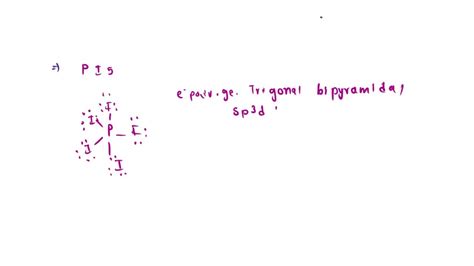 =) P I 5
e⁻ pair ge. Trigonal bipyramidal
sp3d
I
I
P
I
I
I